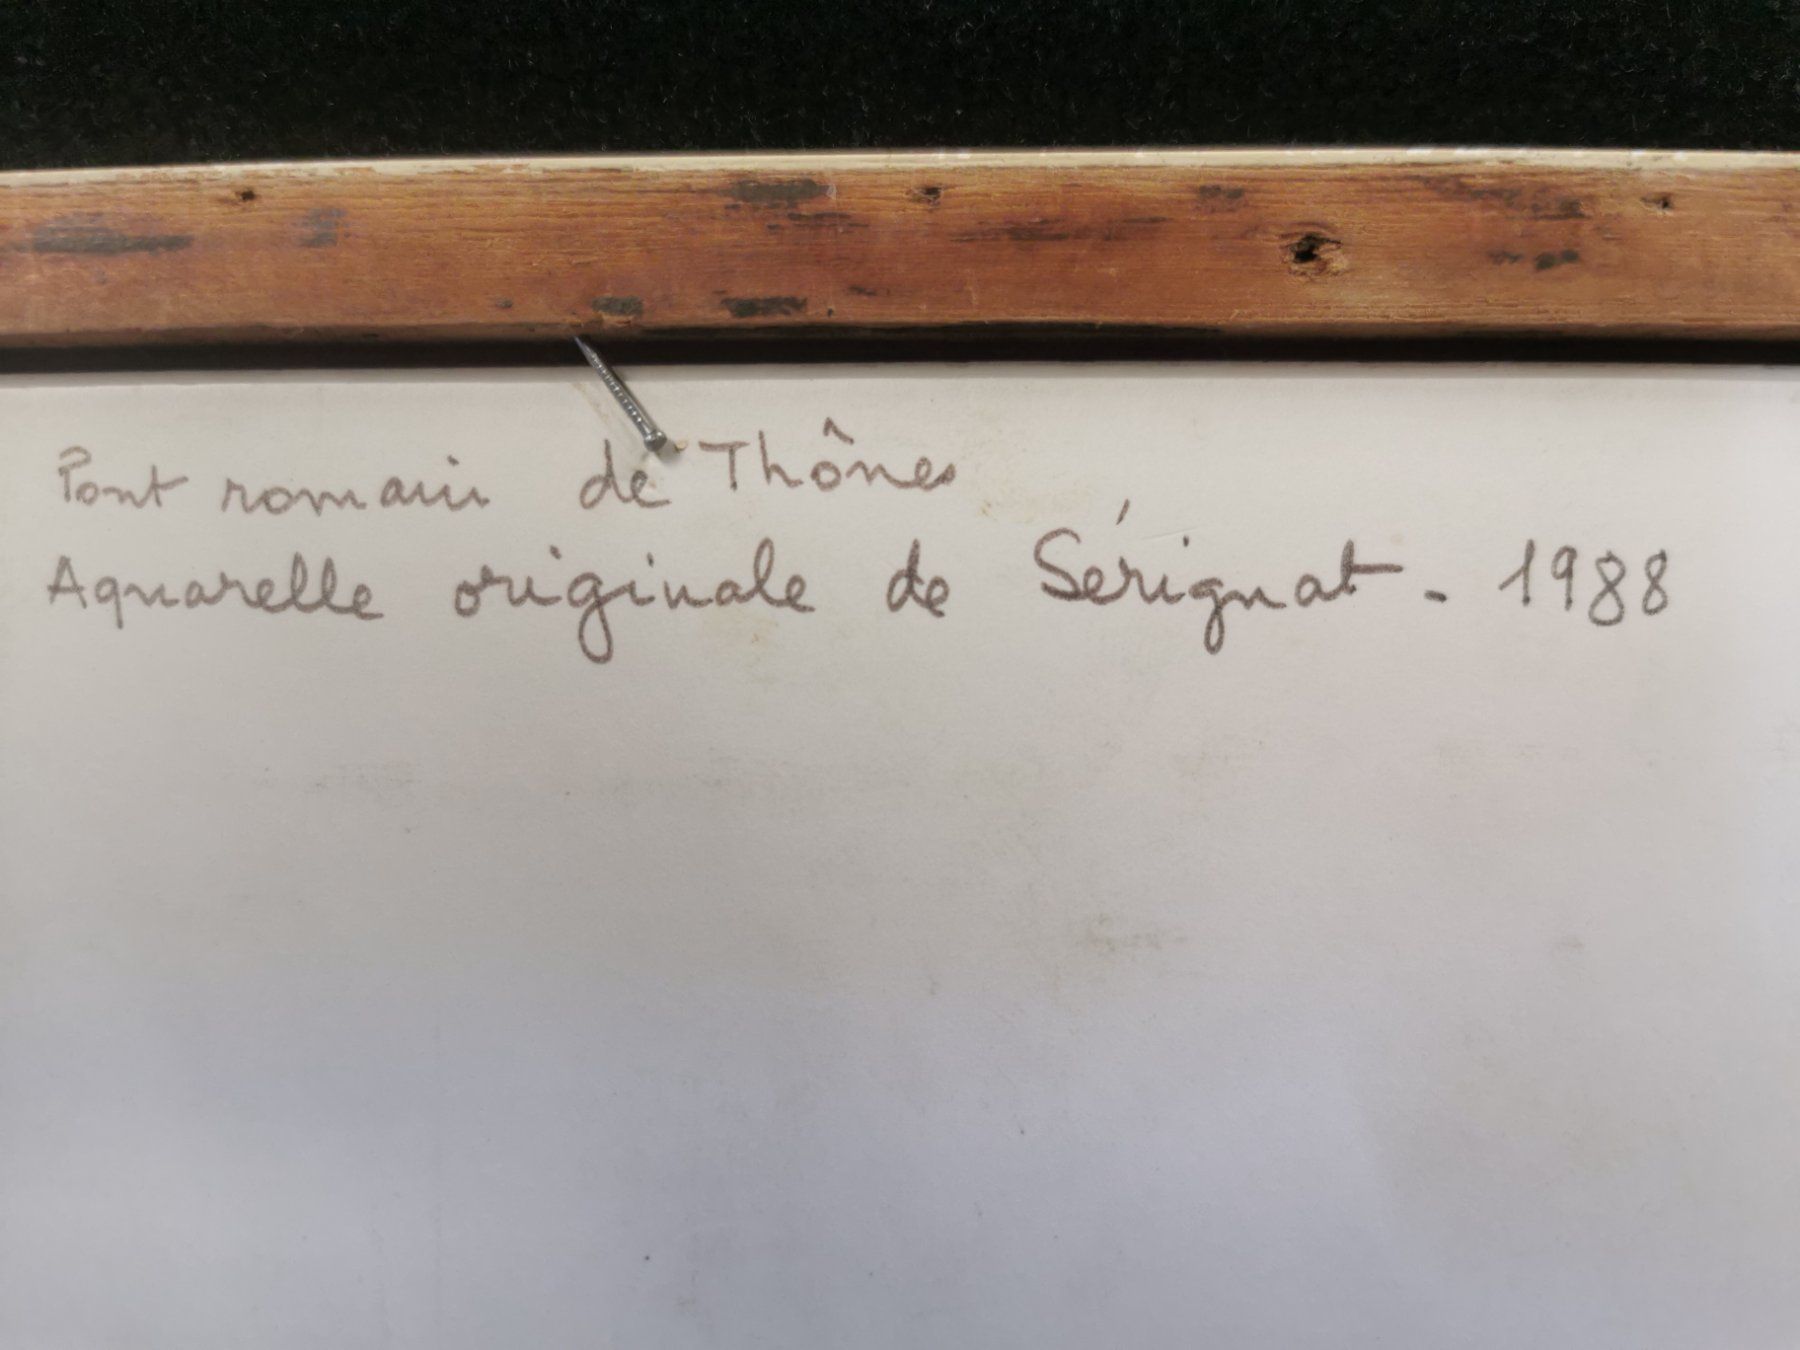 Pont romain de Thônes
Aquarelle originale de Sérignat - 1988